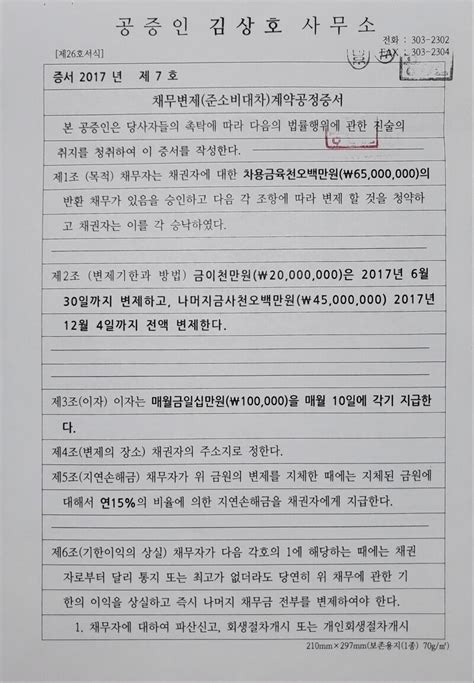 공증인 김상호 사무소
전화 : 303-2302
[제26호서식]
FAX : 303-2304
증서 2017 년 제 7 호
채무변제(준소비대차)계약공정증서
본 공증인은 당사자들의 촉탁에 따라 다음의 법률행위에 관한 진술의
취지를 청취하여 이 증서를 작성한다.
제1조 (목적) 채무자는 채권자에 대한 차용금육천오백만원(₩65,000,000)의
반환 채무가 있음을 승인하고 다음 각 조항에 따라 변제 할 것을 청약하
고 채권자는 이를 각 승낙하였다.
제2조 (변제기한과 방법) 금이천만원(₩20,000,000)은 2017년 6월
30일까지 변제하고, 나머지금사천오백만원(₩45,000,000) 2017년
12월 4일까지 전액 변제한다.
제3조(이자) 이자는 매월금일십만원(₩100,000)을 매월 10일에 각기 지급한
다.
제4조(변제의 장소) 채권자의 주소지로 정한다.
제5조(지연손해금) 채무자가 위 금원의 변제를 지체한 때에는 지체된 금원에
대해서 연15%의 비율에 의한 지연손해금을 채권자에게 지급한다.
제6조(기한이익의 상실) 채무자가 다음 각호의 1에 해당하는 때에는 채권
자로부터 달리 통지 또는 최고가 없더라도 당연히 위 채무에 관한 기
한의 이익을 상실하고 즉시 나머지 채무금 전부를 변제하여야 한다.
1. 채무자에 대하여 파산신고, 회생절차개시 또는 개인회생절차개시
210mm×297mm(보존용지(1종) 70g/㎡)